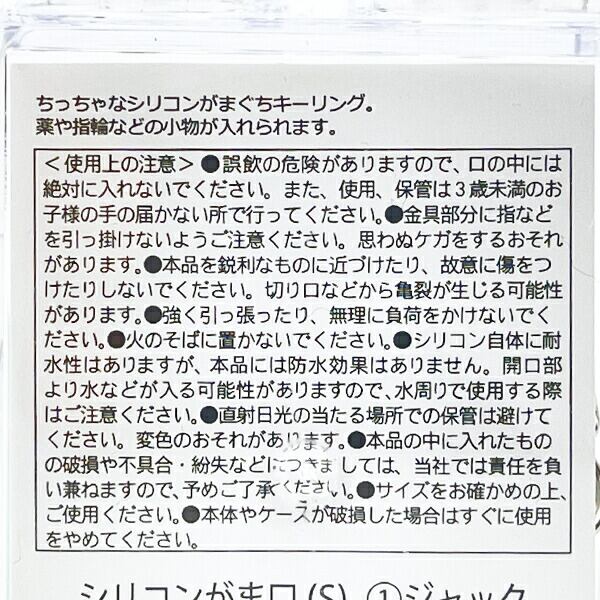 ちっちゃなシリコンがまぐちキーリング。
薬や指輪などの小物が入れられます。
＜使用上の注意＞●誤飲の危険がありますので、口の中には
絶対に入れないでください。また、使用、保管は3歳未満のお
子様の手の届かない所で行ってください。●金具部分に指など
を引っ掛けないようご注意ください。思わぬケガをするおそれ
があります。●本品を鋭利なものに近づけたり、故意に傷をつ
けたりしないでください。切り口などから亀裂が生じる可能性
があります。●強く引っ張ったり、無理に負荷をかけないでく
ださい。●火のそばに置かないでください。●シリコン自体に耐
水性はありますが、本品には防水効果はありません。開口部
より水などが入る可能性がありますので、水周りで使用する際
はご注意ください。●直射日光の当たる場所での保管は避けて
ください。変色のおそれがあります。●本品の中に入れたもの
の破損や不具合・紛失などにつきましては、当社では責任を負
い兼ねますので、予めご了承ください。●サイズをお確かめの上、
ご使用ください。●本体やケースが破損した場合はすぐに使用
をやめてください。
シリコンがま口(S) ①ジャック